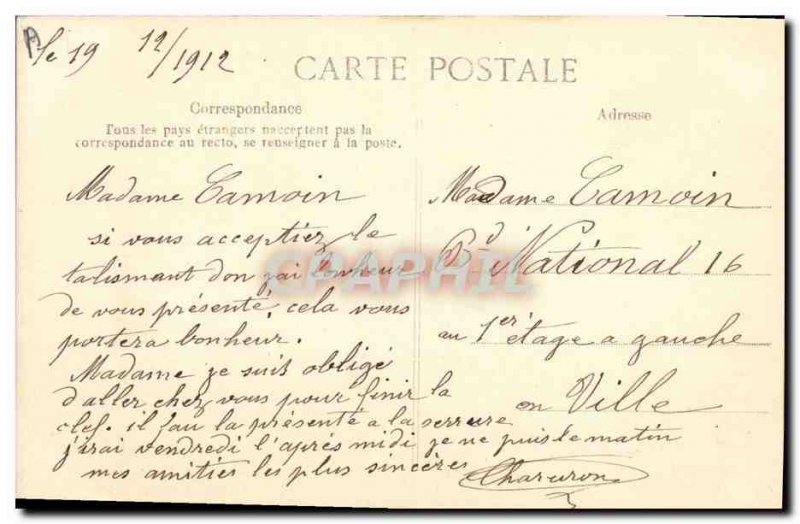 le 19 12/1912
CARTE POSTALE
Correspondance
Tous les pays étrangers n'acceptent pas la
correspondance au recto, se renseigner à la poste.
Adresse
Madame Camoin
si vous acceptiez le
talismant don j'ai lonheur
de vous présenté, cela vous
portera bonheur.
Madame je suis obligé
d'aller chez vous pour finir la
clef. il fau la présenté a la serrure
j'irai vendredi l'après midi je ne puis le matin
mes amitiés les plus sincères
Madame Camoin
Bd National 16
au 1er étage a gauche
en Ville
CPAPHIL